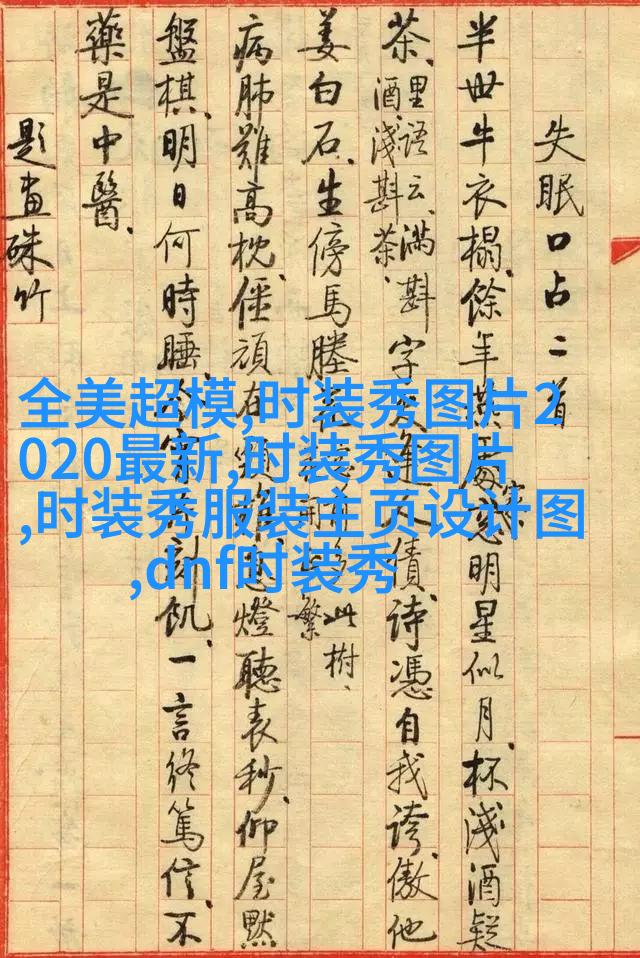 失眠口占二首
半世牛衣榻、餘年明星似月、杯淺酒疑
茶、里語云、滿斟
酒、淺斟茶、
字逢人債、詩憑自我誇、傲他
姜白石、生傍馬塍
此樹、
繁
病肺難高枕、僵頑在燈聽表秒、仰屋默
盤棋、明日何時睡、刻飢、一言終篤信、不
藥是中醫、
題畫硃竹
全美超模,时装秀图片2
020最新,时装秀图片
,时装秀服装主页设计图
,dnf时装秀